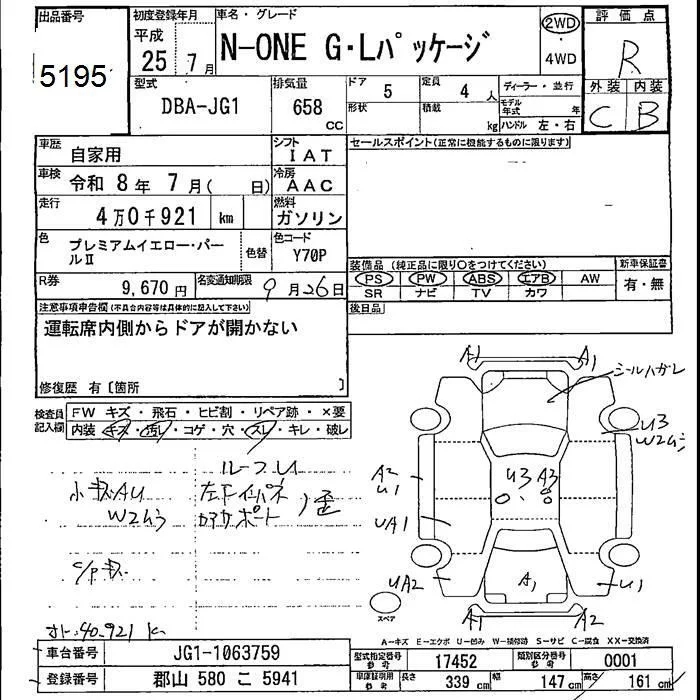 出品番号
5195
初度登録年月
平成
25年 7月
車名・グレード
N-ONE G・Lパッケージ
2WD
・
4WD
評価点
R
外装 内装
C B
型式
DBA-JG1
排気量
658
CC
ドア 5
定員 4人
形状
積載 kg
ディーラー・並行
モデル年式 年
ハンドル 左・右
車歴
自家用
シフト
IAT
車検 令和 8年 7月( 日)
冷房
AAC
走行
4万0千921 km
燃料
ガソリン
色
プレミアムイエロー・パールII
色替
色コード
Y70P
R券
9,670円
名変通知期限
9月26日
セールスポイント(正常に機能するものに限ります)
装備品(純正品に限り○をつけてください)
PS PW ABS エアB AW
SR ナビ TV カワ
新車保証書
有・無
後日品
注意事項申告欄(不具合内容等は具体的に記入して下さい)
運転席内側からドアが開かない
修復歴 有〔箇所 〕
検査員記入欄
FW キズ・飛石・ヒビ割・リペア跡・×要
内装 キズ・汚レ・コゲ・穴・スレ・キレ・破レ
ルーフU
小キズAU
W2ムラ
左下インパネ
カアサポート
歪
C/Pキズ
オト:40.921 K
A1
A1
シールハガレ
U3
W2ムラ
A2
U1
U3 A3
UA1
UA2
A1
U1
A1
A2
スペア
A-キズ E-エクボ U-凹み W-補修跡 S-サビ C-腐食 XX-交換済
車台番号
JG1-1063759
登録番号
郡山 580 こ 5941
型式指定番号
参考
17452
類別区分番号
参考
0001
車庫証明用
参考
長さ 339 cm 幅 147 cm 高さ 161 cm